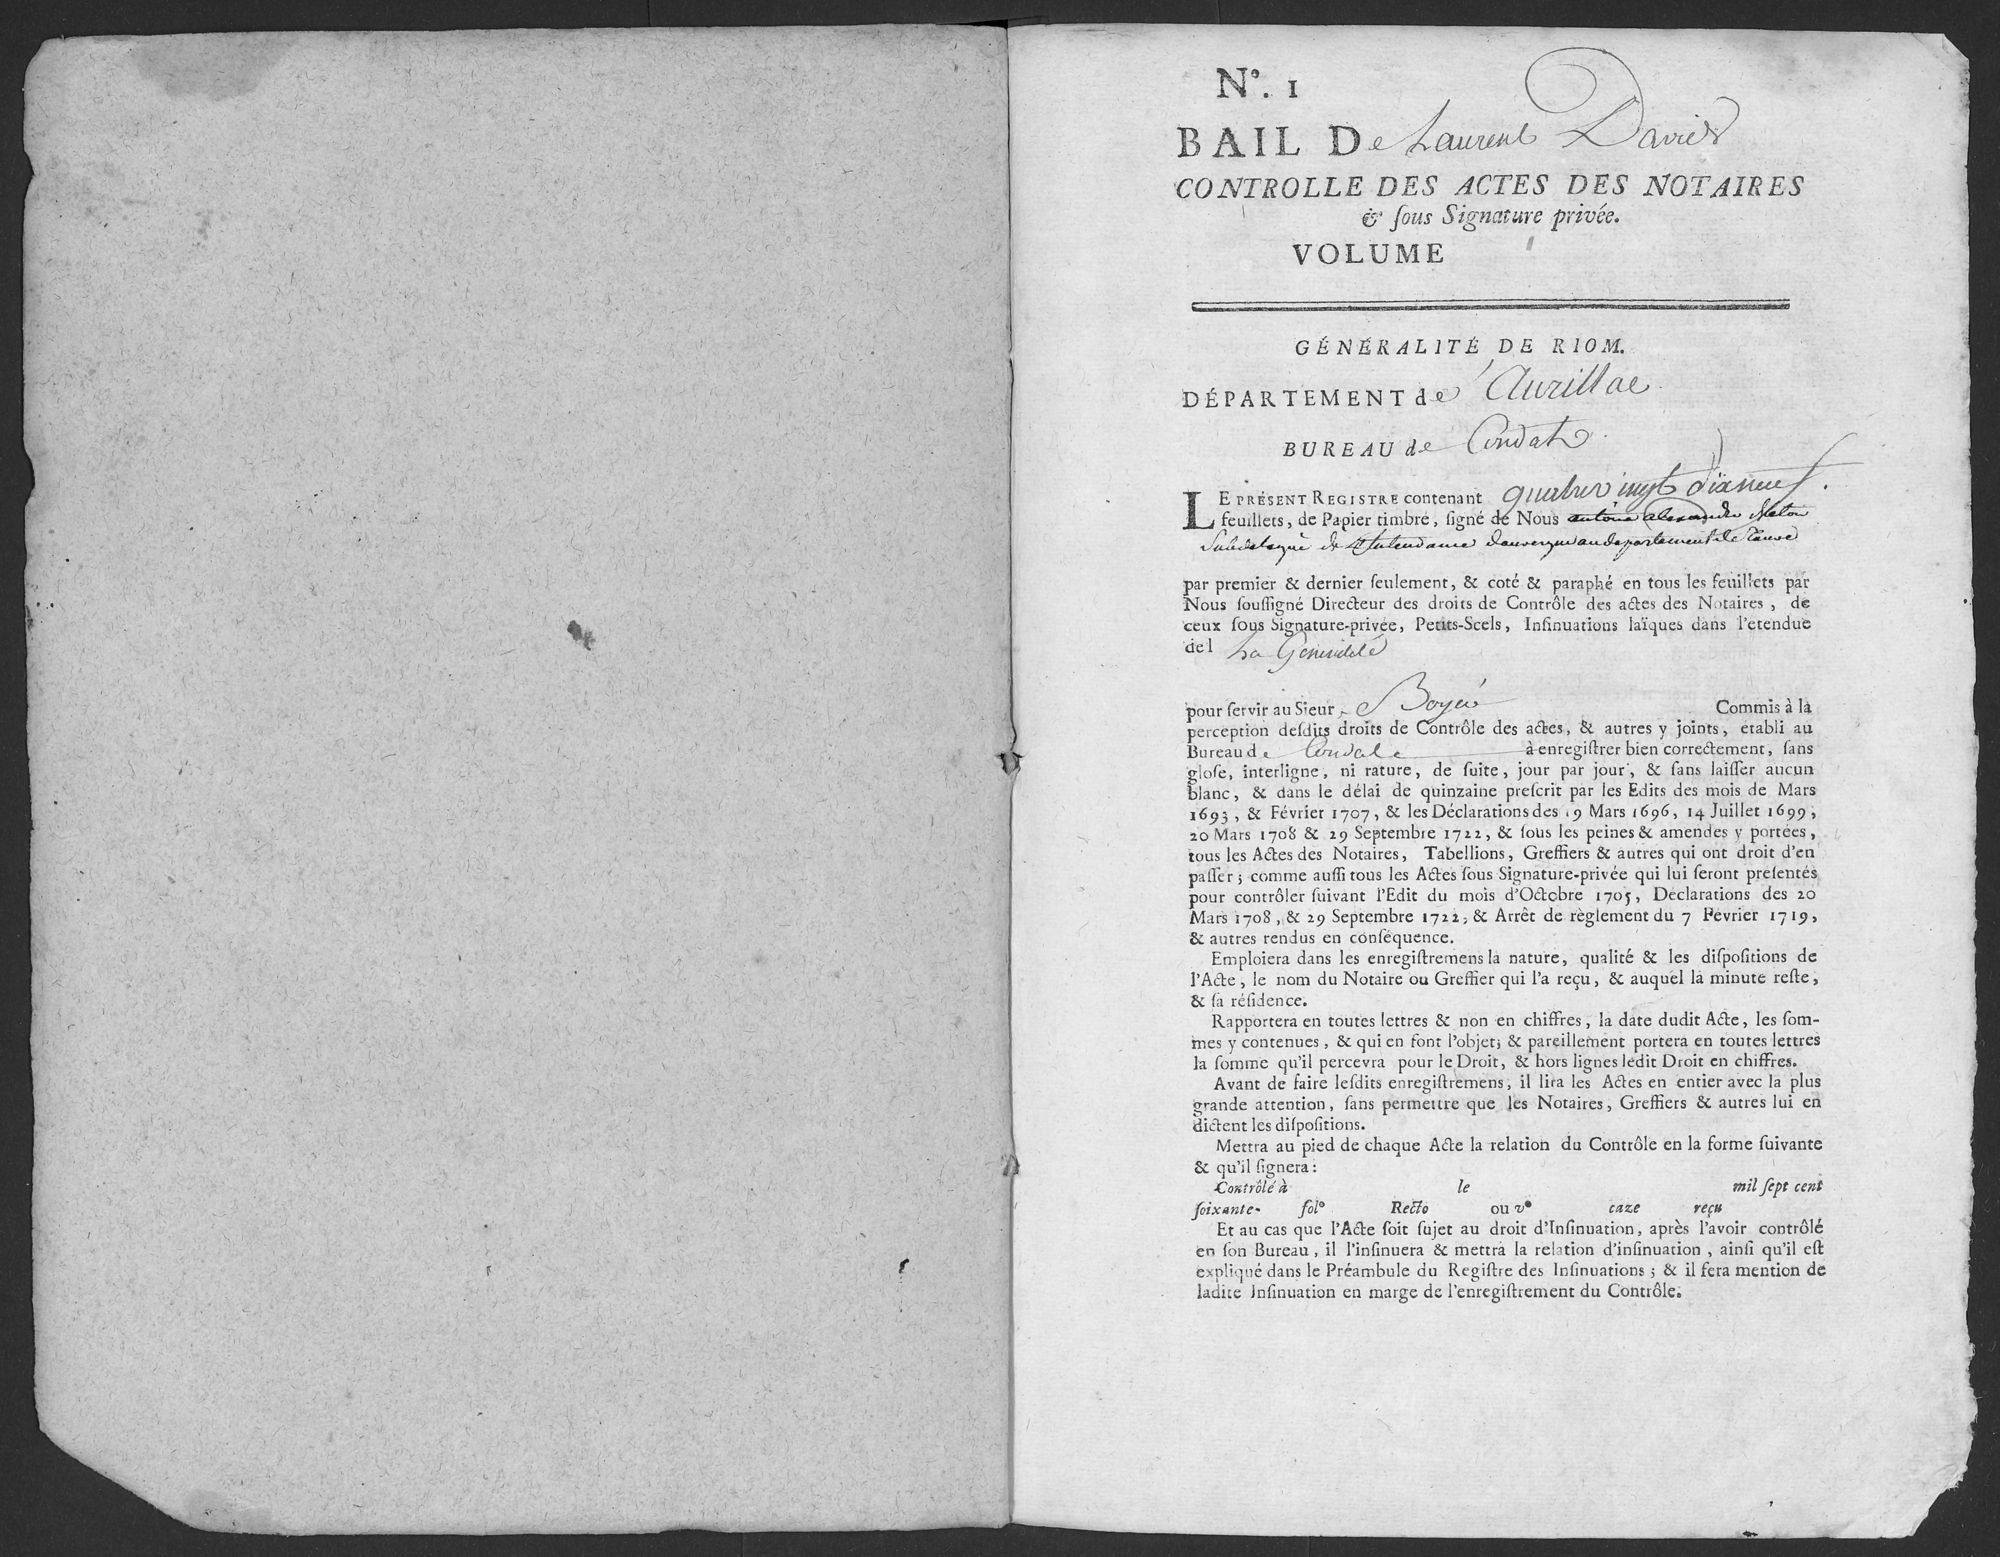 N°. 1
BAIL De Laurent David
CONTROLLE DES ACTES DES NOTAIRES
& ſous Signature privée.
VOLUME
GÉNÉRALITÉ DE RIOM.
DÉPARTEMENT de Aurillac
BUREAU de Condat
LE PRÉSENT REGISTRE contenant quatre vingt dixneuf
feuillets, de Papier timbré, ſigné de Nous antoine alexandre
Subdelegué de L'Intendance d'auvergne au departement de Tauve
par premier & dernier ſeulement, & coté & paraphé en tous les feuillets par
Nous ſouſſigné Directeur des droits de Contrôle des actes des Notaires, de
ceux ſous Signature-privée, Petits-Scels, Inſinuations laïques dans l'etendue
del La Generalité
pour ſervir au Sieur Boyer Commis à la
perception deſdits droits de Contrôle des actes, & autres y joints, etabli au
Bureau de Condat à enregiſtrer bien correctement, ſans
gloſe, interligne, ni rature, de ſuite, jour par jour, & ſans laiſſer aucun
blanc, & dans le délai de quinzaine preſcrit par les Edits des mois de Mars
1693, & Février 1707, & les Déclarations des 19 Mars 1696, 14 Juillet 1699,
20 Mars 1708 & 29 Septembre 1722, & ſous les peines & amendes y portées,
tous les Actes des Notaires, Tabellions, Greffiers & autres qui ont droit d'en
paſſer; comme auſſi tous les Actes ſous Signature-privée qui lui ſeront preſentés
pour contrôler ſuivant l'Edit du mois d'Octobre 1705, Déclarations des 20
Mars 1708, & 29 Septembre 1722, & Arrêt de règlement du 7 Février 1719,
& autres rendus en conſéquence.
Emploiera dans les enregiſtremens la nature, qualité & les diſpoſitions de
l'Acte, le nom du Notaire ou Greffier qui l'a reçu, & auquel la minute reſte,
& ſa réſidence.
Rapportera en toutes lettres & non en chiffres, la date dudit Acte, les ſom-
mes y contenues, & qui en font l'objet; & pareillement portera en toutes lettres
la ſomme qu'il percevra pour le Droit, & hors lignes ledit Droit en chiffres.
Avant de faire leſdits enregiſtremens, il lira les Actes en entier avec la plus
grande attention, ſans permettre que les Notaires, Greffiers & autres lui en
dictent les diſpoſitions.
Mettra au pied de chaque Acte la relation du Contrôle en la forme ſuivante
& qu'il ſignera:
Contrôlé à le mil ſept cent
ſoixante- fol° Recto ou v° caze reçu
Et au cas que l'Acte ſoit ſujet au droit d'Inſinuation, après l'avoir contrôlé
en ſon Bureau, il l'inſinuera & mettra la relation d'inſinuation, ainſi qu'il eſt
expliqué dans le Préambule du Regiſtre des Inſinuations; & il fera mention de
ladite Inſinuation en marge de l'enregiſtrement du Contrôle.